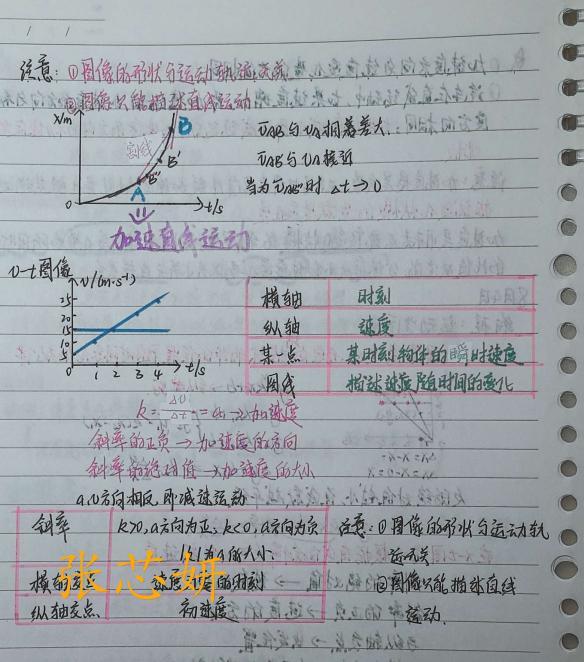 注意：①图像的形状与运动轨迹无关
②图像只能描述直线运动
x/m
B
割线
B'
B"
A
0
t/s
v̄AB与vA相差甚大
v̄AB'与vA接近
当为v̄AB"时 Δt→0
加速直线运动
v-t图像
v/(m·s⁻¹)
25
20
15
10
5
0 1 2 3 4 t/s
横轴 时刻
纵轴 速度
某一点 某时刻物体的瞬时速度
图线 描述速度随时间的变化
k=Δv/Δt=a→加速度
斜率的正负→加速度的方向
斜率的绝对值→加速度的大小
a,v方向相反,即减速运动
斜率 k>0,a方向为正,k<0,a方向为负
|k|为a的大小
横轴交点 速度 的时刻
纵轴交点 初速度
张芯妍
注意：①图像的形状与运动轨
迹无关
②图像只能描述直线
运动